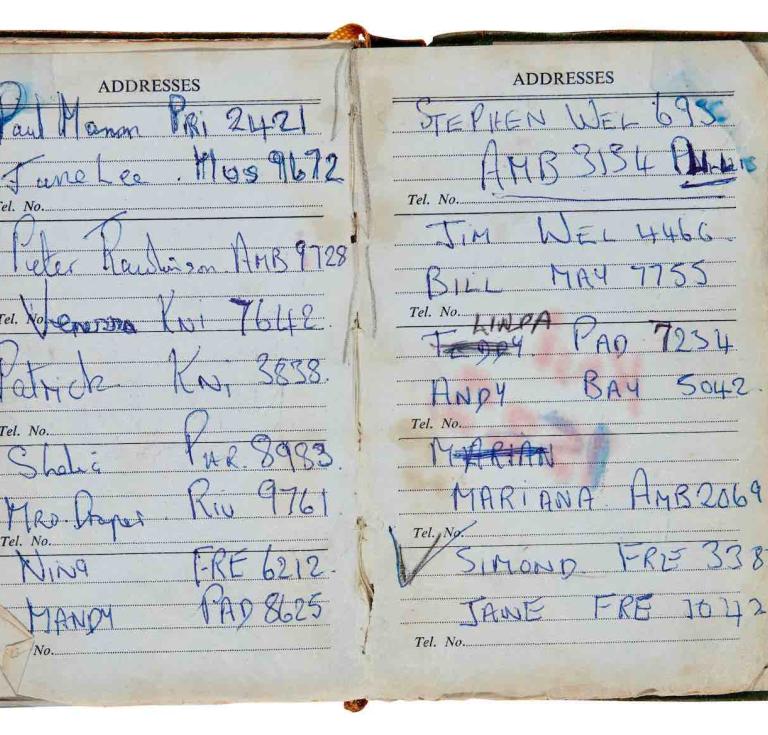 ADDRESSES
Paul Mann PRi 2421
June Lee. Mus 9672
Tel. No.
Peter Rawlinson AMB 9728
Tel. No. KNi 7642
Patrick KNi 3838
Tel. No.
PAR. 8983
Mrs. Draper Riv 9761
Tel. No.
Nina FRE 6212
MANDY PAD 8625
No.
ADDRESSES
STEPHEN WEL 695
AMB 3134
Tel. No.
JIM WEL 4466
BILL MAY 7755
Tel. No.
LINDA
PAD 7234
ANDY BAY 5042
Tel. No.
MARIAN
MARIANA AMB 2069
Tel. No.
SIMOND FRE 338
JANE FRE 1042
Tel. No.